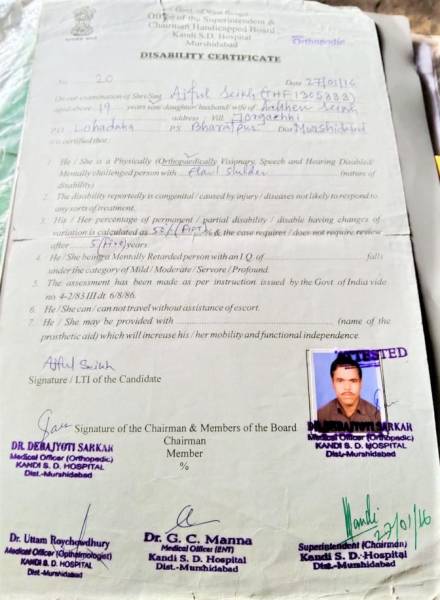 Govt. of West Bengal
Office of the Superintendent &
Chairman Handicapped Board
Kandi S.D. Hospital
Murshidabad
Orthopedic
DISABILITY CERTIFICATE
No. 20 Date 27/01/16
On our examination of Shri/Smt. Ajful Seikh
aged above 19 years son/daughter/husband/wife of Seikh
address Vill.
P.O. Lohadaha P.S. Bharatpur Dist Murshidabad
it is certified that:
1. He / She is a Physically (Orthopaedically Visionary, Speech and Hearing Disabled/
Mentally challenged person with (nature of
disability)
2. The disability reportedly is congenital / caused by injury / diseases not likely to respond to
any sorts of treatment.
3. His / Her percentage of permanent / partial disability / disable having changes of
variation is calculated as % & the case requires / does not require review
after 5 (Five) years.
4. He / She being a Mentally Retarded person with an I Q. of falls
under the category of Mild / Moderate / Servore / Profound.
5. The assessment has been made as per instruction issued by the Govt of India vide
no. 4-2/83 III dt 6/8/86.
6. He / She can / can not travel without assistance of escort.
7. He / She may be provided with (name of the
prosthetic aid) which will increase his / her mobility and functional independence.
Ajful Seikh
Signature / LTI of the Candidate
ATTESTED
Signature of the Chairman & Members of the Board
Chairman
Member
%
DR. DEBAJYOTI SARKAR
Medical Officer (Orthopedic)
KANDI S. D. HOSPITAL
Dist.-Murshidabad
DR. DEBAJYOTI SARKAR
Medical Officer (Orthopedic)
KANDI S. D. HOSPITAL
Dist.-Murshidabad
Dr. Uttam Roychowdhury
Medical Officer (Opthelmologist)
KANDI S. D. HOSPITAL
Dist-Murshidabad
Dr. G. C. Manna
Medical Officer (ENT)
Kandi S. D. Hospital
Dist.-Murshidabad
27/01/16
Superintendent (Chairman)
Kandi S.D. Hospital
Dist.-Murshidabad